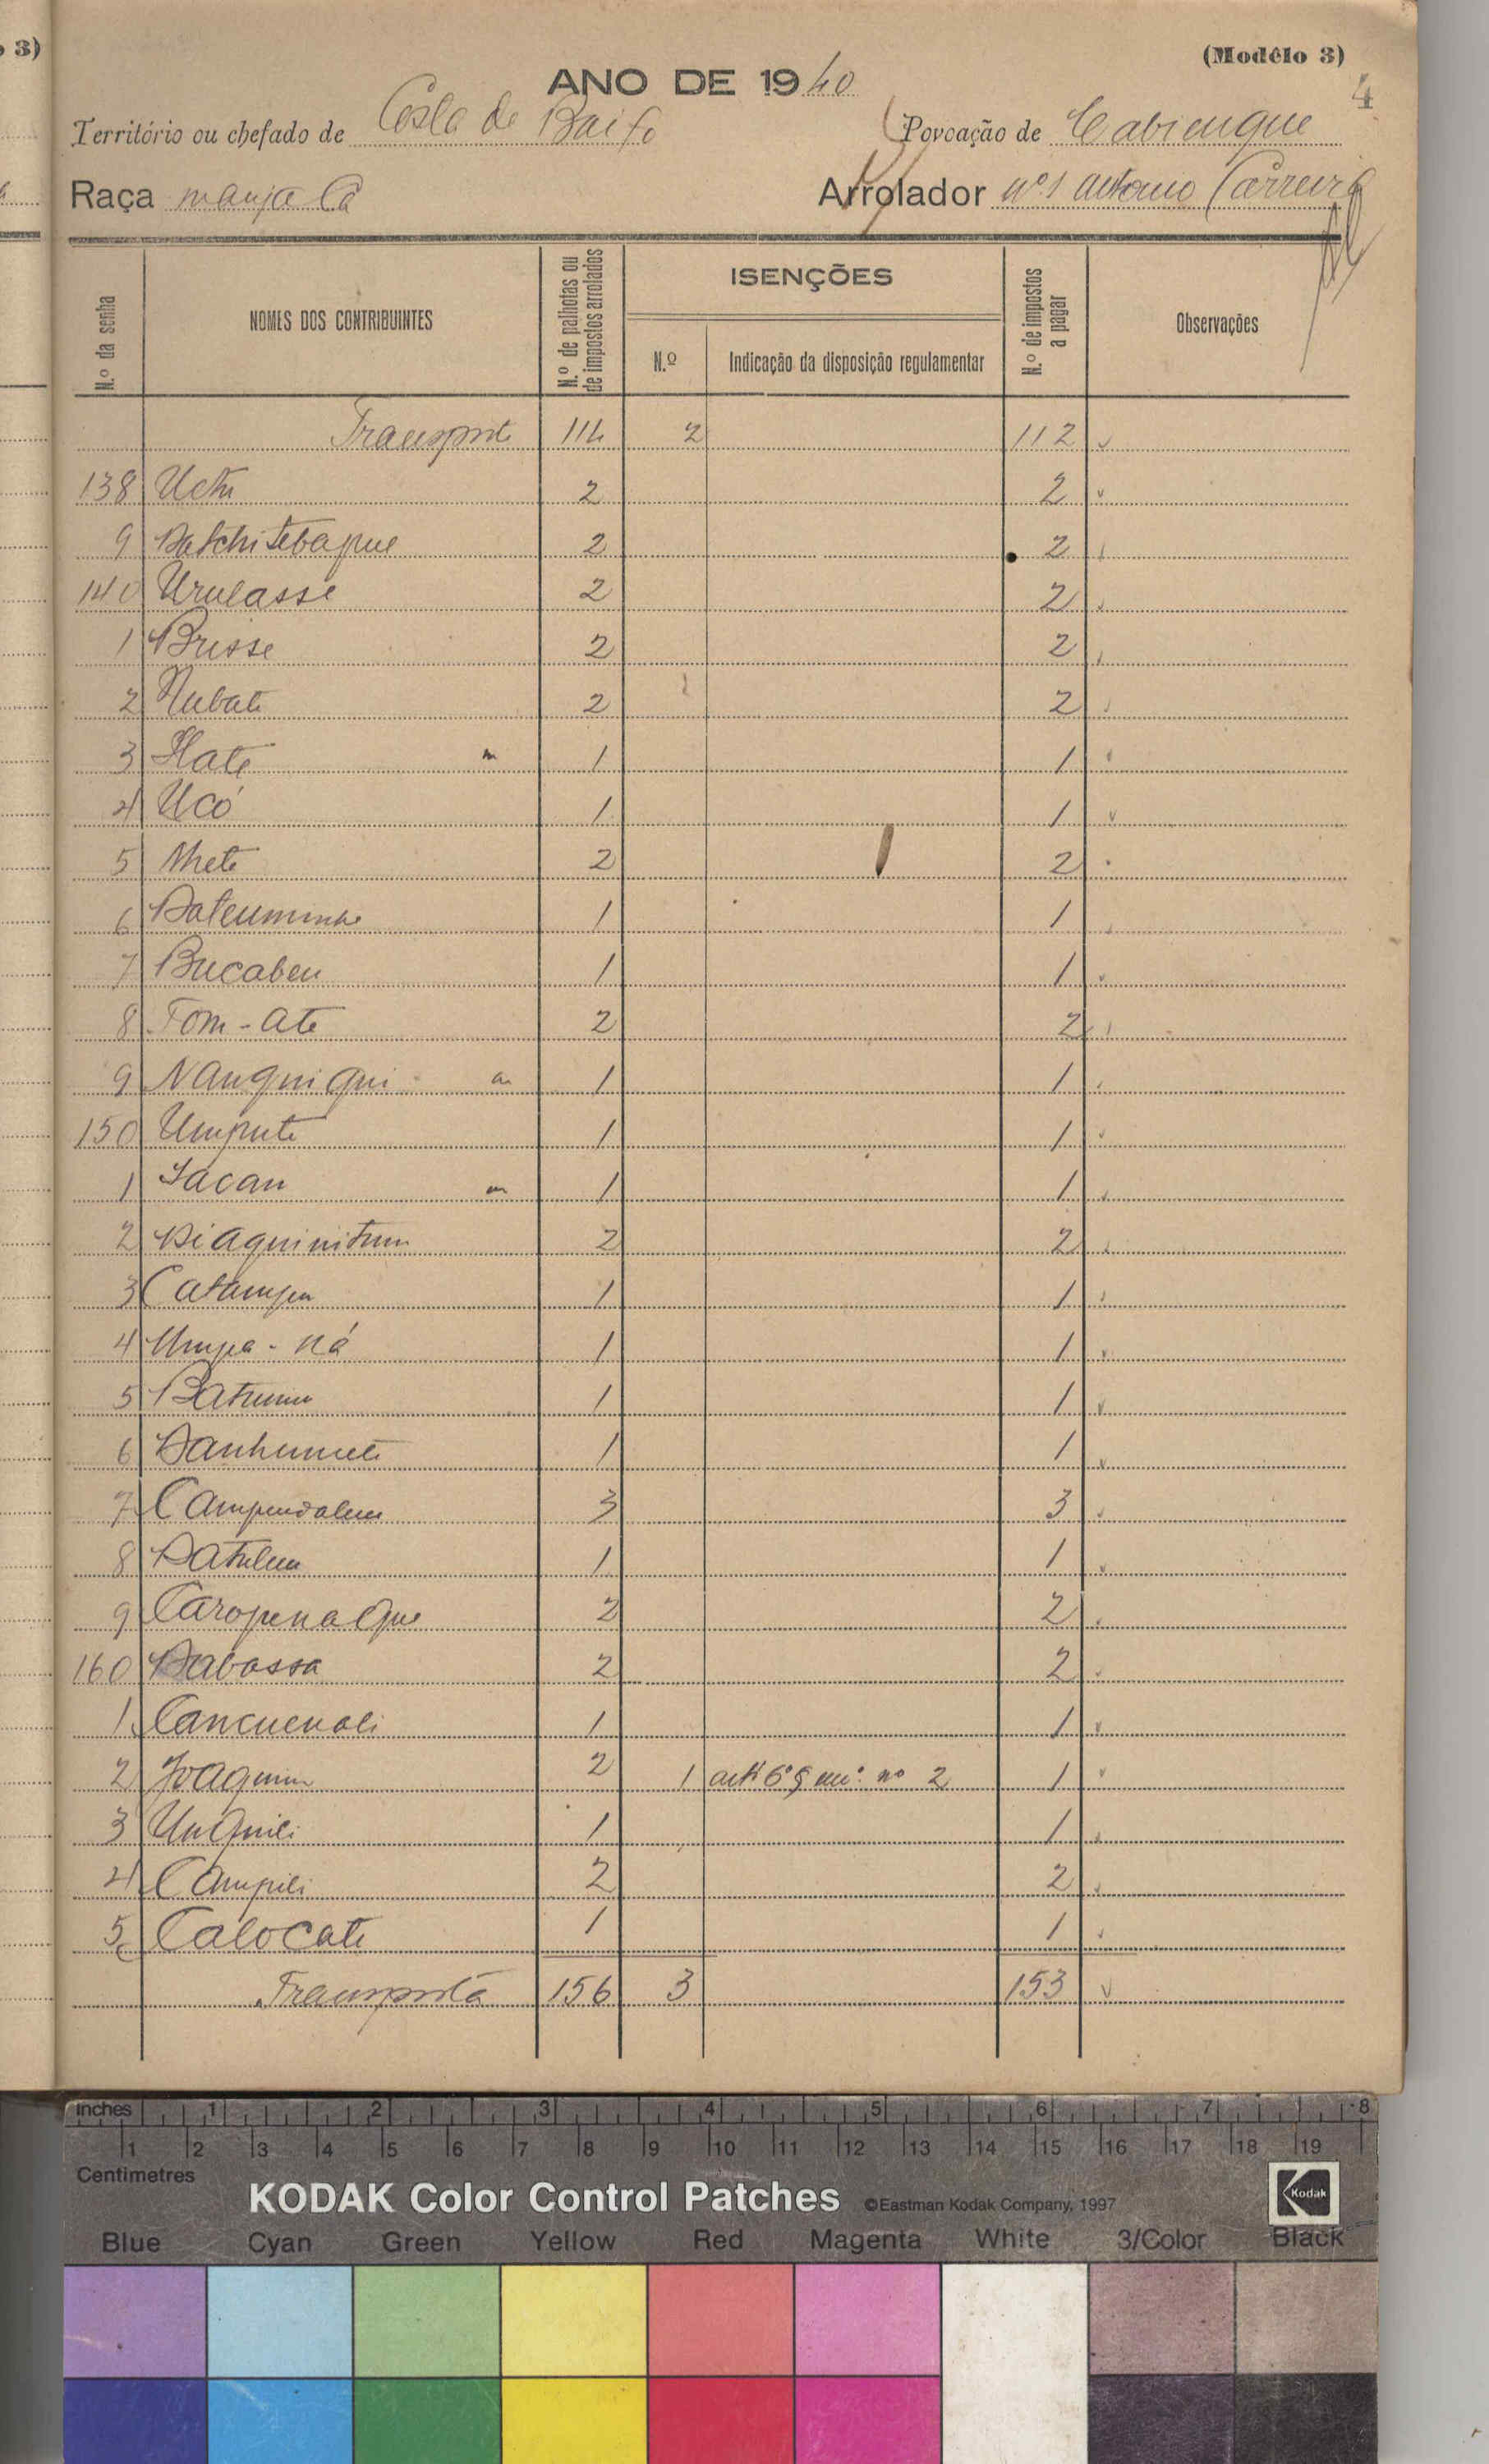 o 3)
(Modêlo 3)
4
ANO DE 1940
Território ou chefado de Costa de Baixo Povoação de Cabienque
Raça manjaca Arrolador nº 1 Antonio Carreira
N.º da senha NOMES DOS CONTRIBUINTES N.º de palhotas ou de impostos arrolados ISENÇÕES N.º Indicação da disposição regulamentar N.º de impostos a pagar Observações
Transporte 114 2 112
138 2 2
9 Batchitebapue 2 2
140 Urulasse 2 2
1 Brisse 2 2
2 Nubate 2 2
3 1 1
4 Ucó 1 1
5 Nhete 2 2
6 1 1
7 Bucabeu 1 1
8 Tom-ate 2 2
9 Nanquiqui 1 1
150 Umpute 1 1
1 Jacan 1 1
2 2 2
3 Catampu 1 1
4 Umpa-ná 1 1
5 1 1
6 1 1
7 3 3
8 1 1
9 Caropenaque 2 2
160 Babossa 2 2
1 Cancucuali 1 1
2 Joaquim 2 1 artº 6º § un.º nº 2 1
3 Unquili 1 1
4 Campili 2 2
5 Calocate 1 1
Transporta 156 3 153
inches 1 2 3 4 5 6 7 8
1 2 3 4 5 6 7 8 9 10 11 12 13 14 15 16 17 18 19
Centimetres
KODAK Color Control Patches ©Eastman Kodak Company, 1997 Kodak
Blue Cyan Green Yellow Red Magenta White 3/Color Black